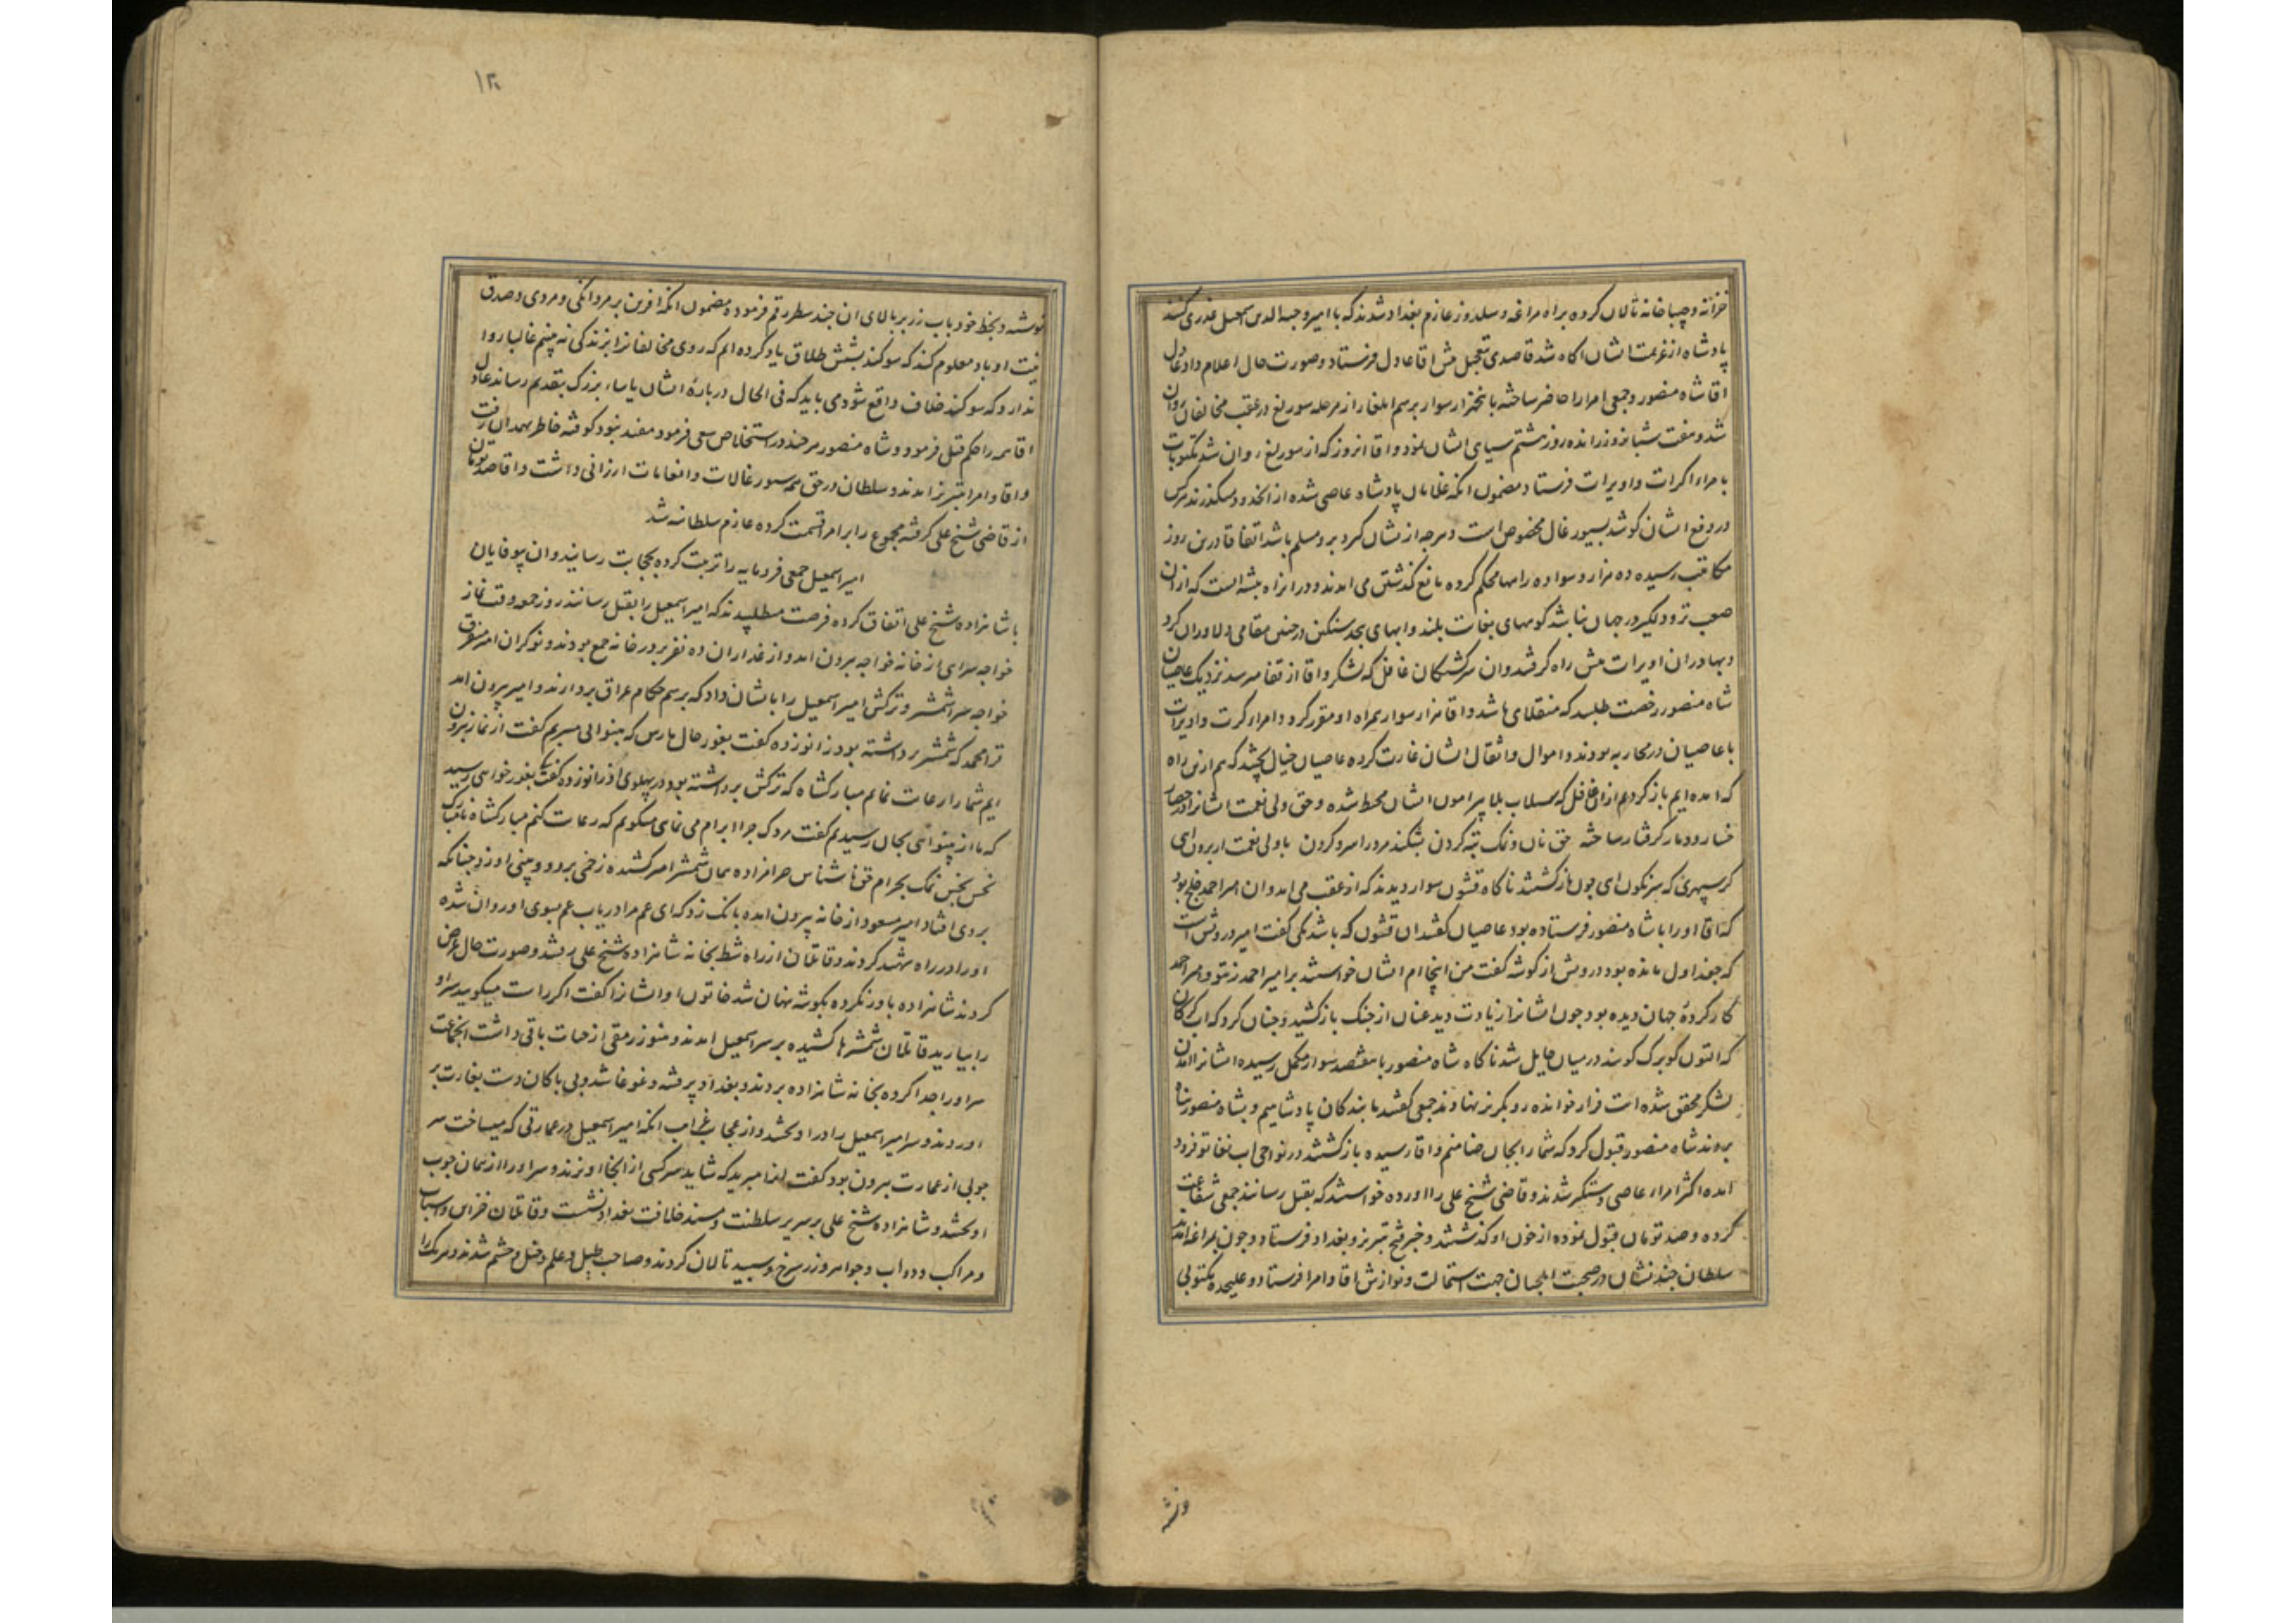 خزانه و جباخانه تالان کرده براه مراغه و سلدوز عازم بغداد شدند که با امیر وجیه الدین اسمعیل غدری کنند
پادشاه از عزیمت ایشان اکاه شد قاصدی بتعجیل پیش اقا عادل فرستاد و صورت حال اعلام داد عادل
اقا شاه منصور و جمعی امرا را حاضر ساخته با پنجهزار سوار برسم ایلغار از مرحله سوریغ در عقب مخالفان روان
شد و هفت شبانروز رانده روز هشتم سیاهی ایشان نمود و اقا انروز که از سوریغ روان شد مکتوبات
بامراء اکراد و اویرات فرستاد مضمون انکه غلامان پادشاه عاصی شده از انحدود میکذرند هرکس
در دفع ایشان کوشد بسیورغال مخصوص است و هرچه از ایشان کیرد برو مسلم باشد اتفاقا درین روز
مکاتیب رسیده ده هزار و سواده راهها محکم کرده مانع کذشتن می امدند و در انراه بیشه است که ازان
صعب تر و دلکیر در جهان نباشد کوههای بغایت بلند و ابهای بیحد سنکین در چنین مقامی دلاوران کرد
و بهادران اویرات پیش راه کرفتند و ان سرکشتکان غافل که لشکر و اقا از قفا میرسد نزدیک عاصیان
شاه منصور رخصت طلبید که منقلای باشد و اقا هزار سوار همراه او مقرر کرد و امرار کرت و اویرات
با عاصیان در محاربه بودند و اموال و اثقال ایشان غارت کرده عاصیان خیال پختند که هم ازین راه
که امده ایم باز کردیم ازان غافل که سیلاب بلا پیرامون ایشان محیط شده و حق ولی نعمت ایشانرا در حصار
خسار و دمار کرفتار ساخته حق نان و نمک تبه کردن بشکند مرد را سر و کردن با ولی نعمت ار برون ای
کر سپهری که سرنکون ای چون باز کشتند ناکاه قشون سوار دیدند که از عقب می امد و ان امیر احمد خلج بود
که اقا او را با شاه منصور فرستاده بود عاصیان کفتند ان قشون که باشد یکی کفت امیر درویش است
که جغداول مانده بود درویش از کوشه کفت من اینجا ام ایشان خواستند بر امیر احمد زنند و امیر احمد
کار کرده جهان دیده بود چون ایشانرا زیادت دید عنان از جنک باز کشید و چنان کرد که اب کلان
که التون کوبرک کویند در میان حایل شد ناکاه شاه منصور با هفتصد سوار مکمل رسیده ایشانرا امدن
لشکر محقق شده است فرار خوانده رو بکریز نهادند جمعی کفتند ما بندکان پادشاهیم و بشاه منصور پناه
بردند شاه منصور قبول کرد که شما را بجان ضامنم و اقا رسیده باز کشتند در نواحی اب نغاتو فرود
امده اکثر امراء عاصی دستکیر شدند و قاضی شیخ علی را اورده خواستند که بقتل رسانند جمعی شفاعت
کرده و صد تومان قبول نموده از خون او کذشتند و خبر فتح تبریز و بغداد فرستاد و چون بمراغه امد
سلطان چند نشان در صحبت ایلچیان جهت استمالت و نوازش اقا و امرا فرستاد و علیحده مکتوبی
نوشته
۱۲۰
نوشته و بخط خود باب زر بر بالای ان چند سطر رقم فرموده مضمون انکه افرین بر مردانکی و مردی و صدق
نیت او باد معلوم کند که سوکند بشش طلاق یاد کرده ایم که روی مخالفانرا بزندکی نه بینم غالبا روا
ندارد که سوکند خلاف واقع شود می باید که فی الحال درباره ایشان یاساء بزرک بتقدیم رساند عادل
اقا همه را حکم قتل فرمود و شاه منصور هرچند در استخلاص سعی فرمود مفید نبود کوفته خاطر بهمدان رفت
و اقا و امرا بتبریز امدند و سلطان در حق همه سیورغالات و انعامات ارزانی داشت و اقا صد تومان
از قاضی شیخ علی کرفته مجموع را برامرا قسمت کرده عازم سلطانیه شد
امیر اسمعیل جمعی فرومایه را تربیت کرده بحجابت رسانید و ان بیوفایان
با شاهزاده شیخ علی اتفاق کرده فرصت مطلبیدند که امیر اسمعیل را بقتل رسانند روز جمعه وقت نماز
خواجه سرای از خانه خواجه بیرون امد و از غداران ده نفر بر در خانه جمع بودند و نوکران امیر متفرق
خواجه سرا شمشیر و ترکش امیر اسمعیل را بایشان داد که برسم حکام عراق بردارند و امیر بیرون امد
قرا محمد که شمشیر برداشته بود زانو زده کفت بغور حال ما رس که بینوایی میبریم کفت از نماز بیرون
ایم شما را رعایت نمایم مبارکشاه که ترکش برداشته بود در پهلوی او زانو زده کفت کی بغور خواهی رسید
که ما از بینوایی بجان رسیدیم کفت مردک چرا ابرام می نمایی میکویم که رعایت کنم مبارکشاه نامبارک
نحس نجس نمک بحرام حق ناشناس حرامزاده همان شمشیر امیر کشیده زخمی بر رو و بینی او زد چنانکه
بروی افتاد امیر مسعود از خانه بیرون امده بانک زد که ای عم مرا دریاب عم بسوی او روان شده
او را در راه شهید کردند و قاتلان از راه شط بخانه شاهزاده شیخ علی رفتند و صورت حال عرض
کردند شاهزاده باور نکرده بکوشه پنهان شد خاتون او ایشانرا کفت اکر راست میکویید سر او
را بیارید قاتلان شمشیرها کشیده بر سر اسمعیل امدند و هنوز رمقی از حیات باقی داشت انجماعت
سر او را جدا کرده بخانه شاهزاده بردند و بغداد پر فتنه و غوغا شد و بی باکان دست بغارت بر
اوردند و سر امیر اسمعیل را در اویختند و از عجایب غرایب انکه امیر اسمعیل در عمارتی که میساخت سر
چوبی از عمارت بیرون بود کفت اینرا مبرید که شاید سر کسی از اینجا اویزند و سر او را از همان چوب
اویختند و شاهزاده شیخ علی بر سریر سلطنت و مسند خلافت بغداد نشست و قاتلان خزاین و اسباب
و مراکب و دواب و جواهر و زر سرخ و سپید تالان کردند و صاحب طبل و علم و خیل و حشم شدند و هر یک را